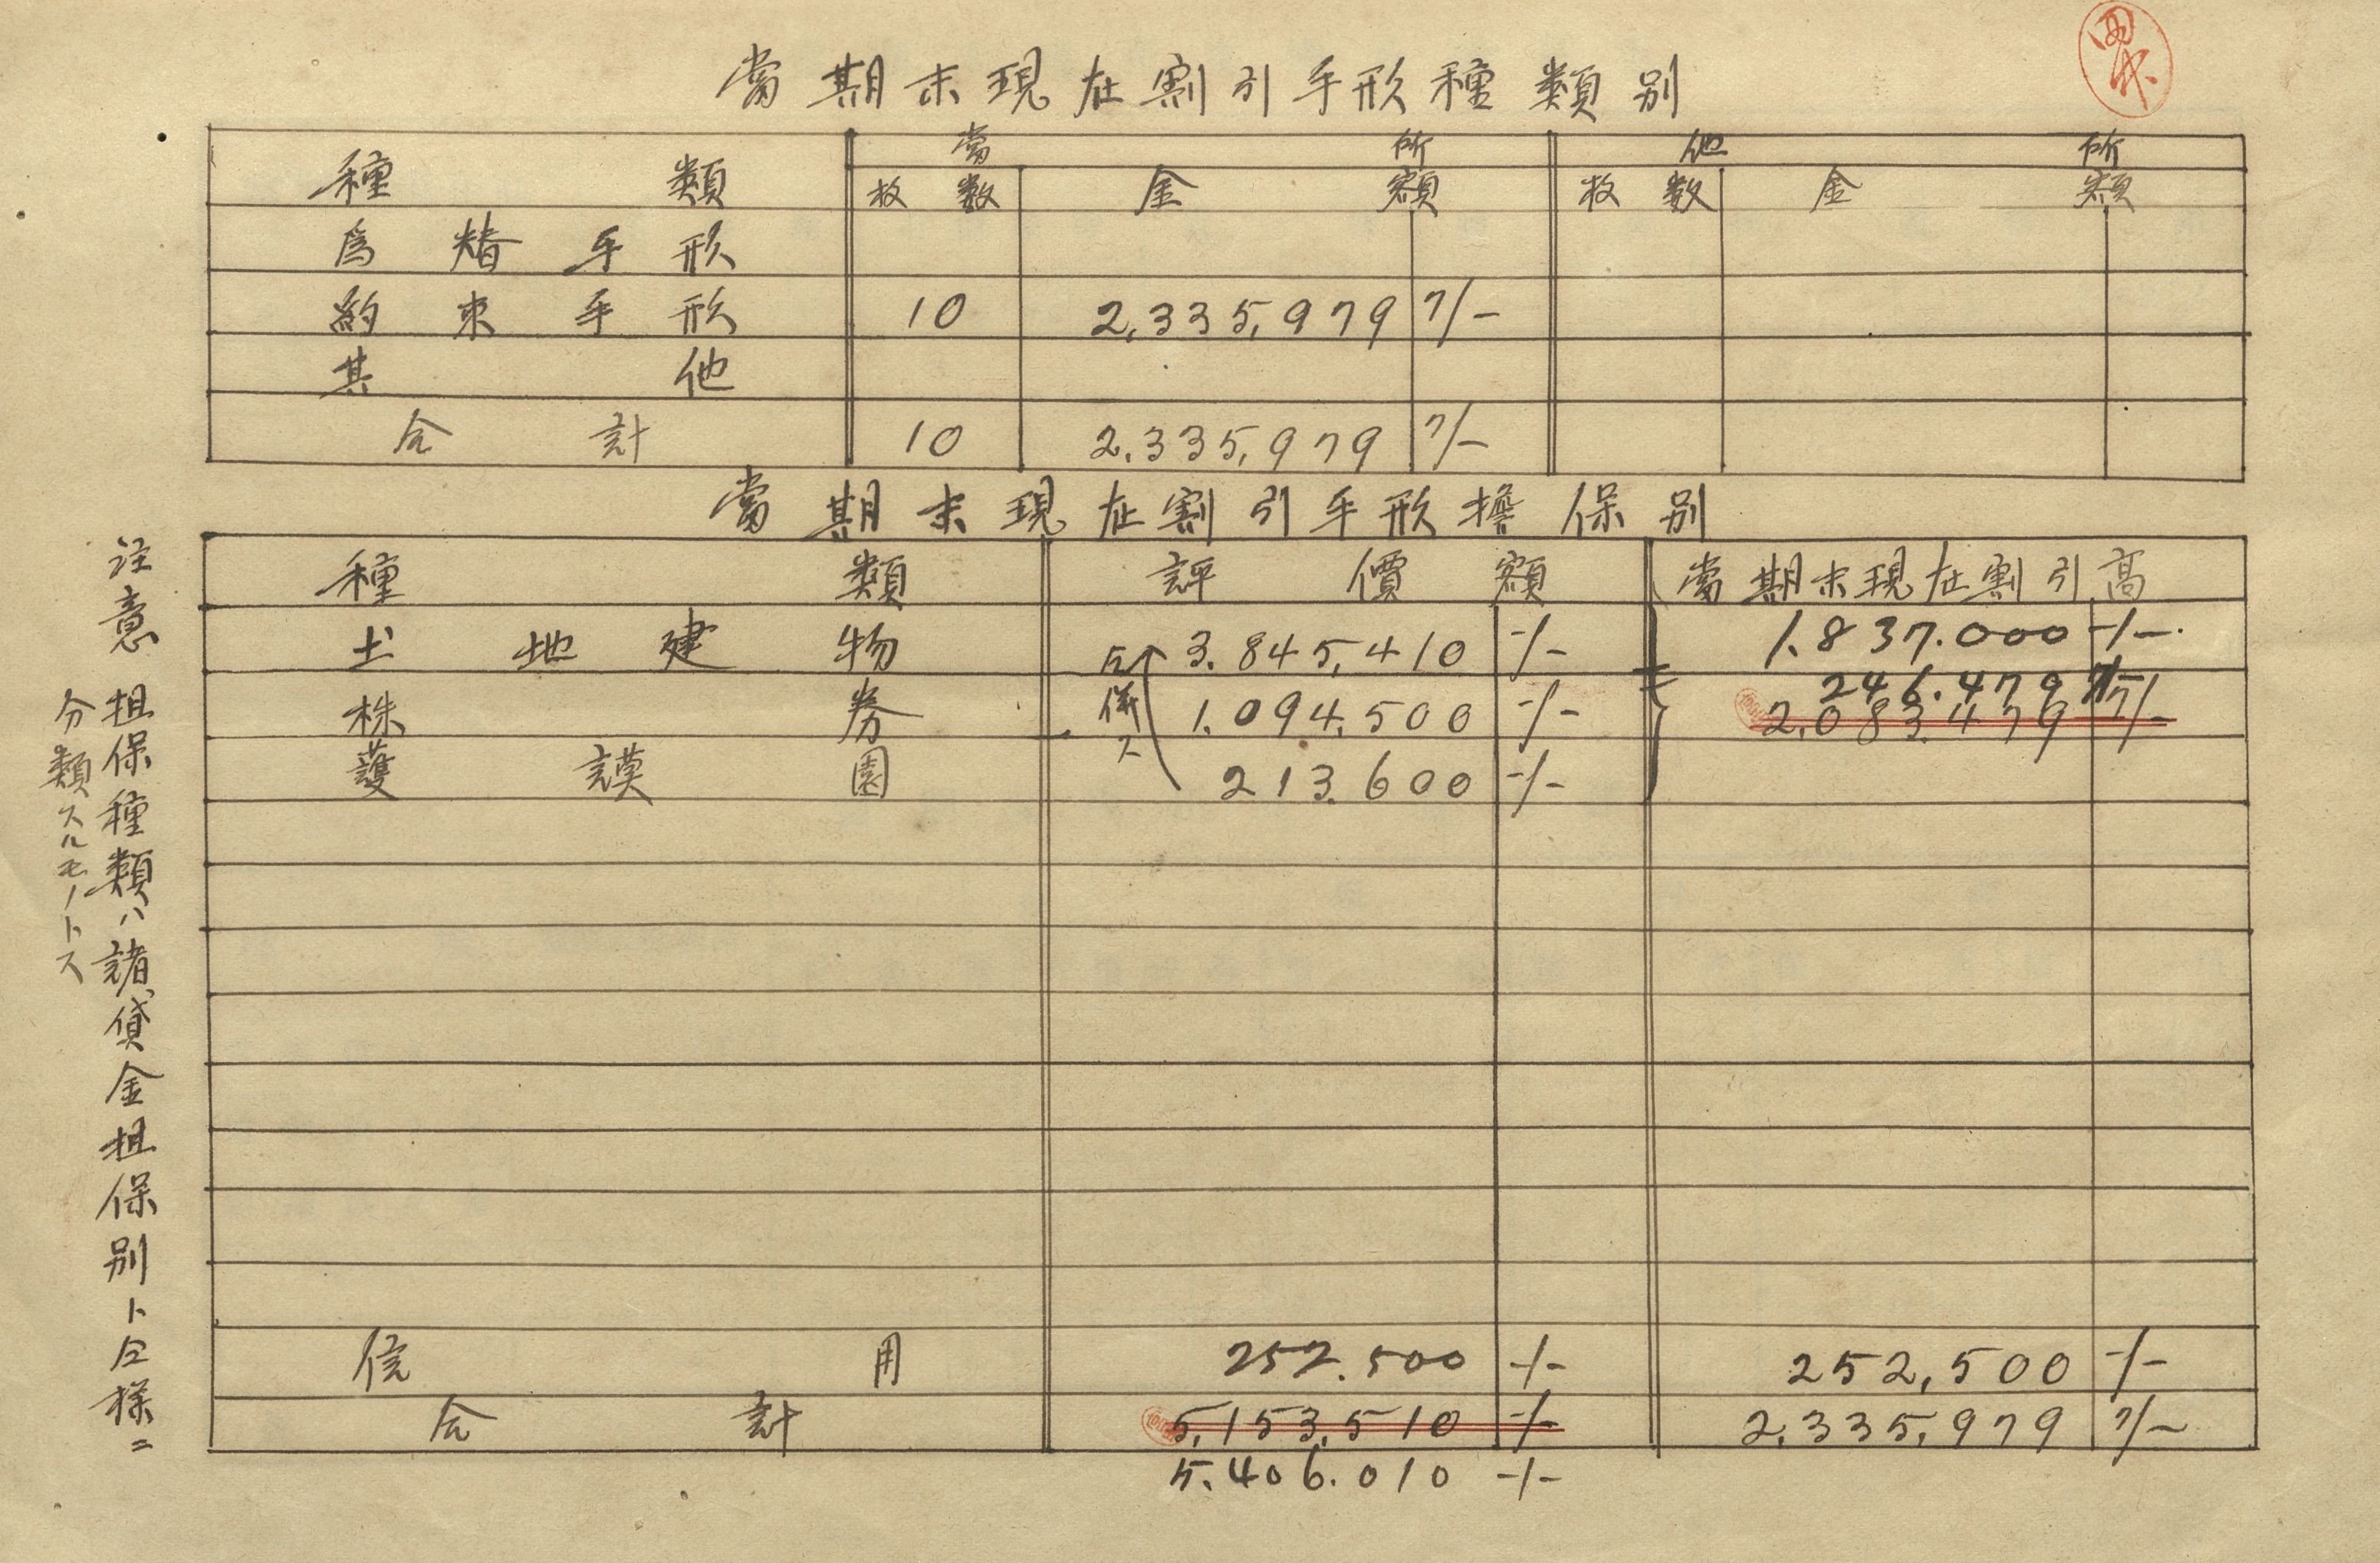 當期末現在割引手形種類別
種類 當所 他所
枚数 金額 枚数 金額
為替手形
約束手形 10 2,335,979 7/-
其他
合計 10 2,335,979 7/-
當期末現在割引手形擔保別
種類 評價額 當期末現在割引高
土地建物 3.845,410 -/- 1.837.000 -/-
246.479 7/-
株券 1.094.500 -/- 2,083.479 7/-
護謨園 213.600 -/-
信用 252.500 -/- 252,500 -/-
合計 5,153,510 -/- 2.335,979 7/-
5.406.010 -/-
注意 担保種類ハ諸貸金担保別ト仝様ニ
分類スルモノトス